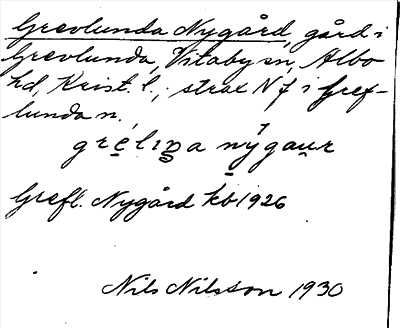 Grevlunda Nygård, gård i
Grevlunda, Vitaby sn, Albo
hd, Krist. l., strax N f i Gref-
lunda n.
Grefl. Nygård kb 1926
Nils Nilsson 1930